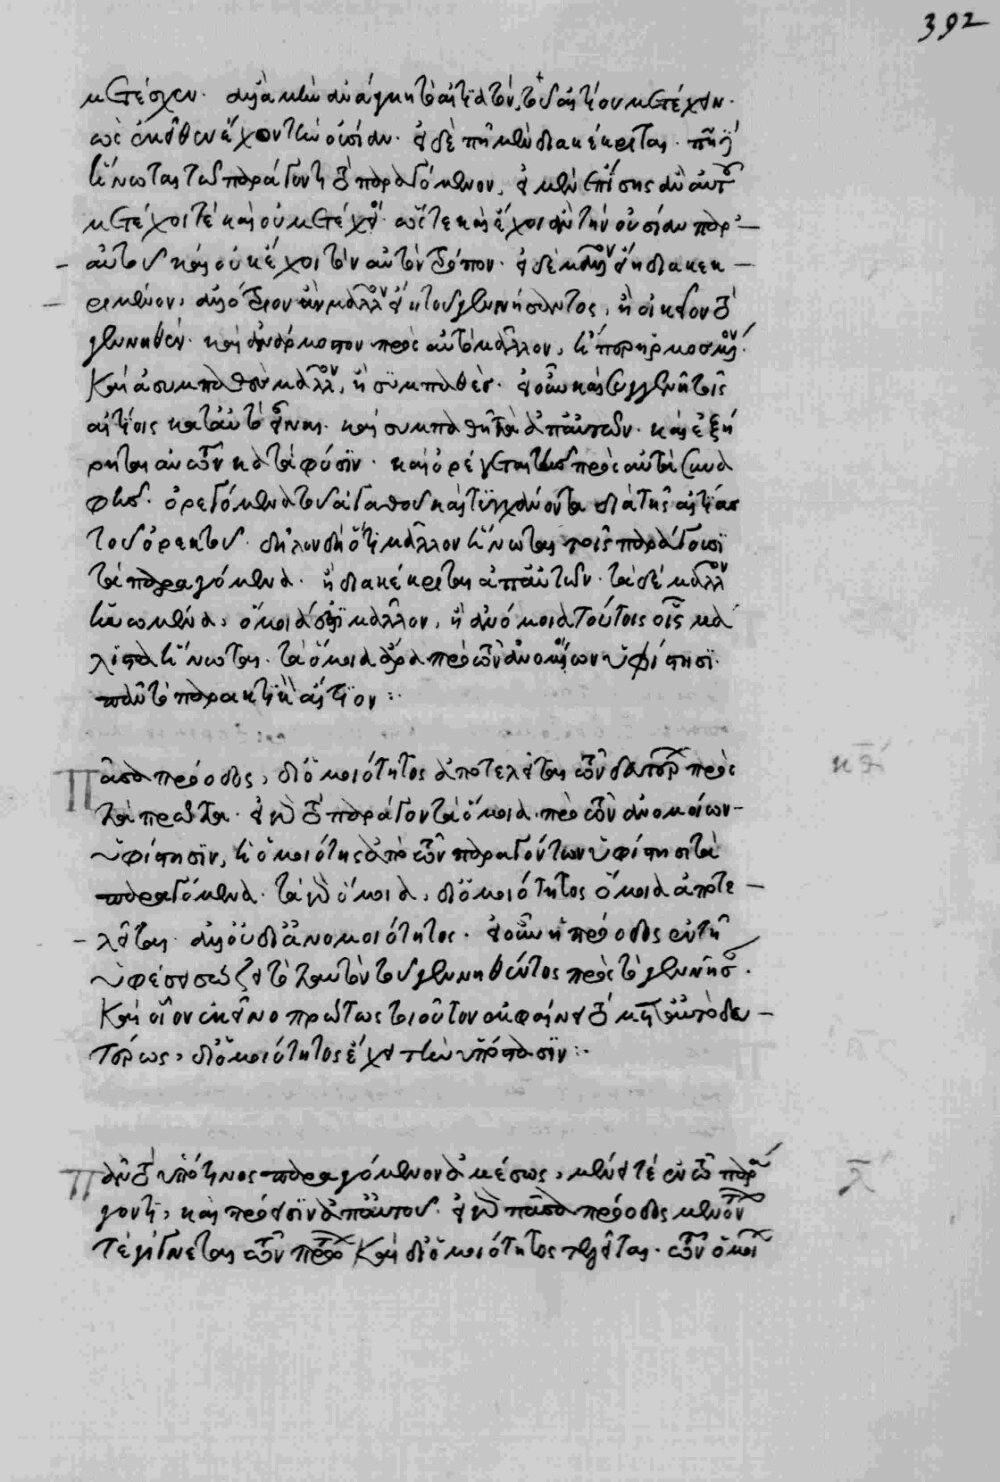 392
μετέσχεν. ἀλλὰ μὴν ἀνάγκη τὸ αἰτιατὸν, τοῦ αἰτίου μετέχειν.
ὡς ἐκεῖθεν ἔχον τὴν οὐσίαν. εἰ δὲ πῆ μὲν διακέκριται. πῆ δ'
ἥνωται τῷ παράγοντι τὸ παραγόμενον, εἰ μὲν ἐπίσης ἂν αὐτοῦ
μετέχοι τὲ καὶ οὐ μετέχοι. ὥστε καὶ ἔχοι ἂν τὴν οὐσίαν παρ'
αὐτοῦ καὶ οὐκ ἔχοι τὸν αὐτὸν τρόπον. εἰ δὲ μᾶλλον εἴη διακεκ
ριμένον, ἀλλότριον ἂν μᾶλλον εἴη τοῦ γεννήσαντος, ἢ οἰκεῖον τὸ
γεννηθὲν. καὶ ἀνάρμοστον πρὸς αὐτὸ μᾶλλον, ἢ προσηρμοσμένον.
καὶ ἀσυμπαθὲς μᾶλλον, ἢ συμπαθὲς. εἰ οὖν καὶ συγγενῆ τοῖς
αἰτίοις κατ' αὐτὸ τὸ εἶναι. καὶ συμπαθῆ τὰ ἀπ' αὐτῶν. καὶ ἐξή
ρτηται αὐτῶν κατὰ φύσιν. καὶ ὀρέγεται τῆς πρὸς αὐτὰ συνα
φῆς. ὀρεγόμενα τοῦ ἀγαθοῦ καὶ τυγχάνοντα διὰ τῆς αἰτίας
τοῦ ὀρεκτοῦ. δῆλον δὴ ὅτι μᾶλλον ἥνωται τοῖς παράγουσι
τὰ παραγόμενα. ἢ διακέκριται ἀπ' αὐτῶν. τὰ δὲ μᾶλλον
ἡνωμένα, ὅμοιά ἐστι μᾶλλον, ἢ ἀνόμοια τούτοις οἷς μά
λιστα ἥνωται. τὰ ὅμοια ἄρα πρὸ τῶν ἀνομοίων ὑφίστησι
πᾶν τὸ παρακτικὸν αἴτιον :·
κθ
Πᾶσα πρόοδος, δι' ὁμοιότητος ἀποτελεῖται τῶν δευτέρων πρὸς
τὰ πρῶτα. εἰ γὰρ τὸ παράγον τὰ ὅμοια πρὸ τῶν ἀνομοίων
ὑφίστησιν, ἡ ὁμοιότης ἀπὸ τῶν παραγόντων ὑφίστησι τὰ
παραγόμενα. τὰ γὰρ ὅμοια, δι' ὁμοιότητος ὅμοια ἀποτε
λεῖται. ἀλλ' οὐ δι' ἀνομοιότητος. εἰ οὖν ἡ πρόοδος ἐν τῇ
ὑφέσει σώζει τὸ ταυτὸν τοῦ γεννηθέντος πρὸς τὸ γεννῆσαν.
καὶ οἷον ἐκεῖνο πρώτως τοιοῦτον ἐκφαίνει τὸ μετ' αὐτὸ δευ
τέρως, δι' ὁμοιότητος ἔχει τὴν ὑπόστασιν :·
λ
Πᾶν τὸ ὑπό τινος παραγόμενον ἀμέσως, μένει τέ ἐν τῷ παρά
γοντι, καὶ πρόεισιν ἀπ' αὐτοῦ. εἰ γὰρ πᾶσα πρόοδος μενόντων
τέ γίγνεται τῶν πρώτων καὶ δι' ὁμοιότητος τελεῖται. τῶν ὁμοίων